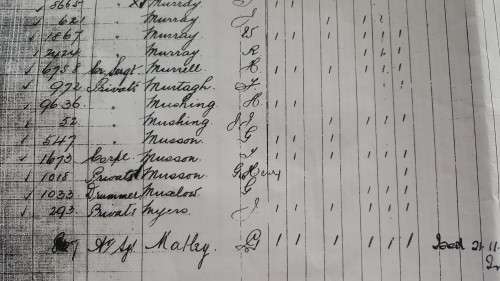 ✓ 5665 " Murray J 1 1
✓ 621 " Murray J 1 1 1
✓ 1867 " Murray W 1 1 1 1 1 1
✓ 2424 " Murray R 1 1 1 1
✓ 6758 Cr Sergt Murrell C 1 1 1 1 1 1
✓ 972 Private Murtagh. J. 1 1
✓ 9636. " Mushing H. 1 1
✓ 52 " Mushing J J 1 1 1 1
✓ 547 " Musson. G 1 1
✓ 1673 Corpl Musson. J 1 1 1 1 1 1
✓ 1018 Private Musson G
✓ 1033 Drummer Muxlow G 1 1
✓ 293 Private Myers. J 1 1 1 1 1 1
Matley. G 1 1 1 1 1 1 21 11